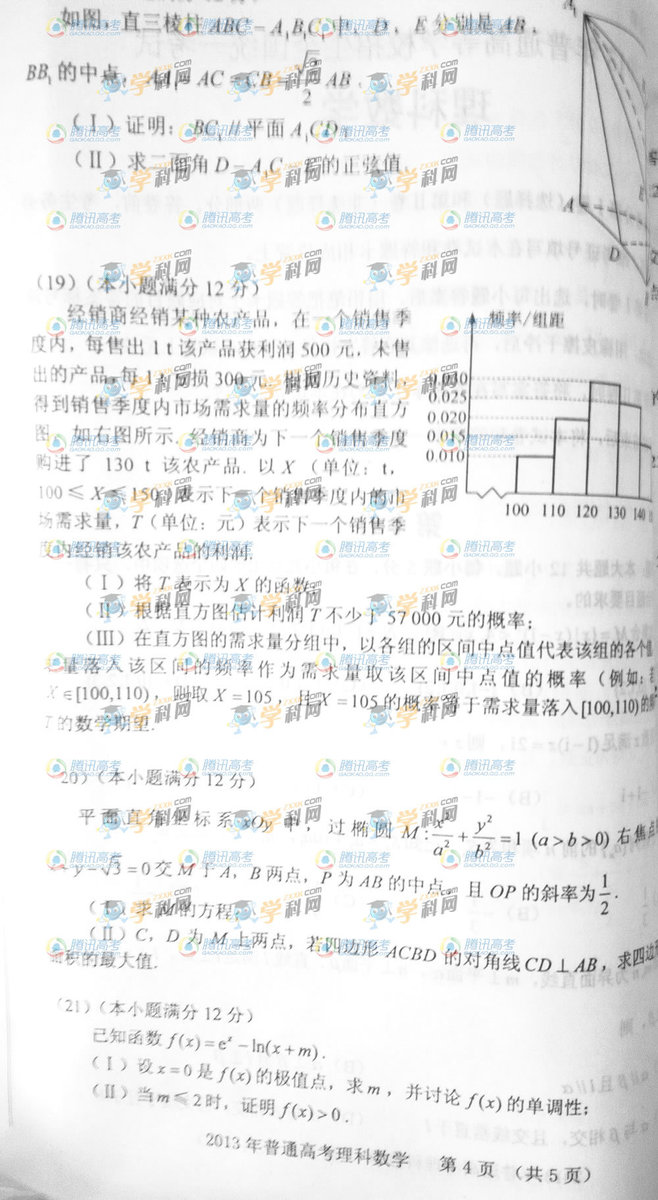 如图，直三棱柱 ABC－A₁B₁C₁ 中，D，E 分别是 AB，
BB₁ 的中点，AA₁＝AC＝CB＝√2/2 AB．
（Ⅰ）证明：BC₁ // 平面 A₁CD；
（Ⅱ）求二面角 D－A₁C－E 的正弦值．
A₁
E
A
D
（19）（本小题满分 12 分）
经销商经销某种农产品，在一个销售季
度内，每售出 1 t 该产品获利润 500 元，未售
出的产品，每 1 t 亏损 300 元．根据历史资料，
得到销售季度内市场需求量的频率分布直方
图，如右图所示．经销商为下一个销售季度
购进了 130 t 该农产品．以 X（单位：t，
100≤X≤150）表示下一个销售季度内的市
场需求量，T（单位：元）表示下一个销售季
度内经销该农产品的利润．
频率/组距
0.030
0.025
0.020
0.015
0.010
100 110 120 130 140
（Ⅰ）将 T 表示为 X 的函数；
（Ⅱ）根据直方图估计利润 T 不少于 57 000 元的概率；
（Ⅲ）在直方图的需求量分组中，以各组的区间中点值代表该组的各个值，
量落入该区间的频率作为需求量取该区间中点值的概率（例如：若
X∈[100,110)，则取 X＝105，且 X＝105 的概率等于需求量落入[100,110)的频
T 的数学期望．
20）（本小题满分 12 分）
平面直角坐标系 xOy 中，过椭圆 M：x²/a²＋y²/b²＝1 (a>b>0) 右焦点
－y－√3＝0 交 M 于 A，B 两点，P 为 AB 的中点，且 OP 的斜率为 1/2．
（Ⅰ）求 M 的方程；
（Ⅱ）C，D 为 M 上两点，若四边形 ACBD 的对角线 CD⊥AB，求四边
面积的最大值．
（21）（本小题满分 12 分）
已知函数 f(x)＝eˣ－ln(x＋m)．
（Ⅰ）设 x＝0 是 f(x) 的极值点，求 m，并讨论 f(x) 的单调性；
（Ⅱ）当 m≤2 时，证明 f(x)>0．
2013 年普通高考理科数学 第 4 页 （共 5 页）